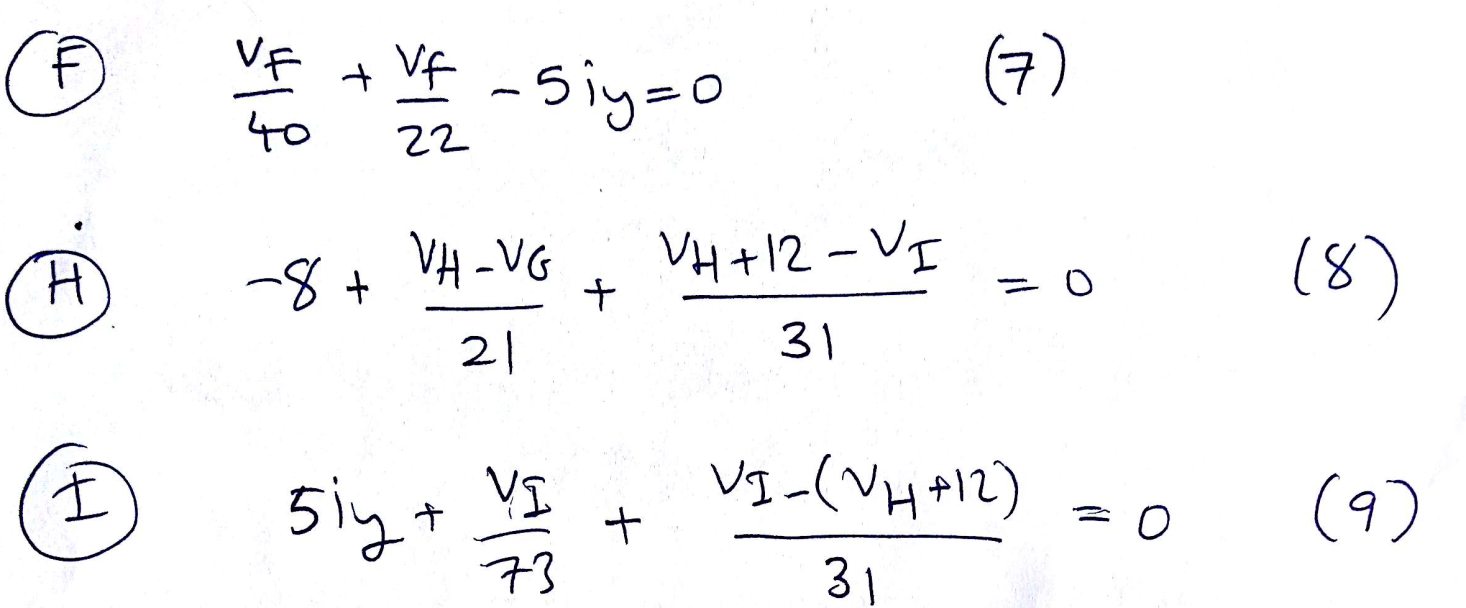 (F) VF/40 + Vf/22 - 5iy=0 (7)
(H) -8 + (VH-VG)/21 + (VH+12-VI)/31 = 0 (8)
(I) 5iy + VI/73 + (VI-(VH+12))/31 = 0 (9)